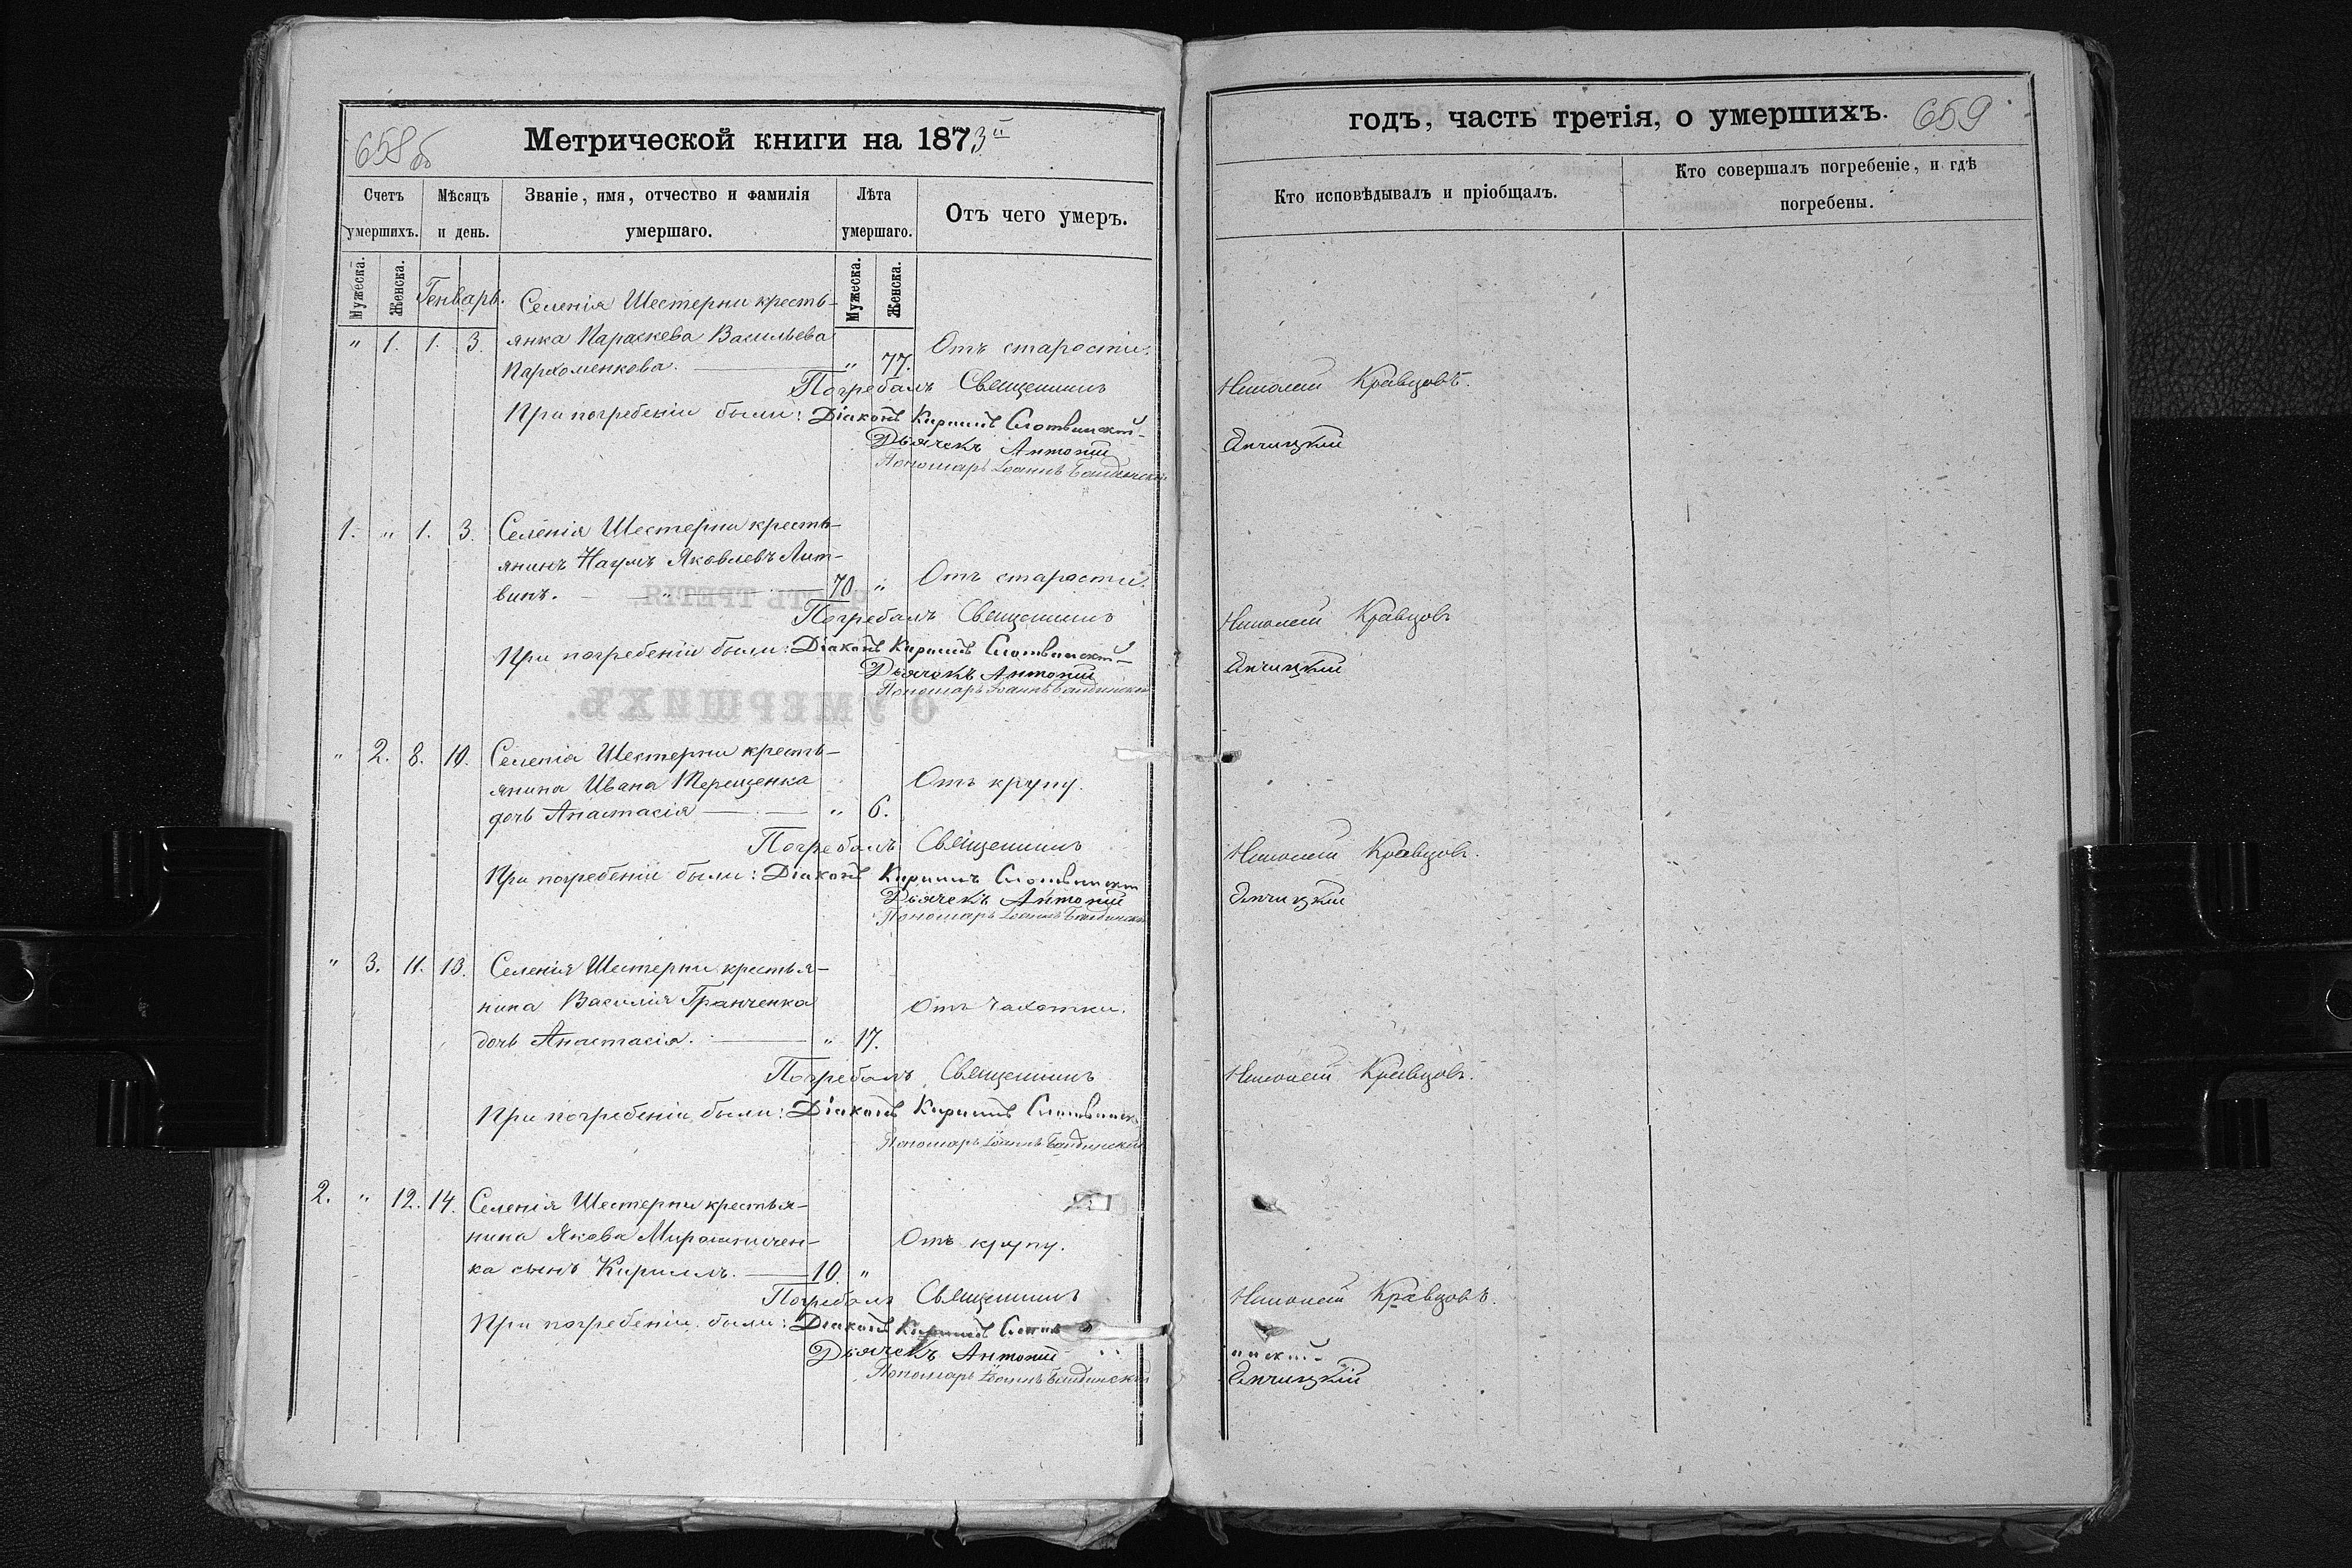 658 об
Метрической книги на 1873й
Счетъ умершихъ.
Мѣсяцъ и день.
Званіе, имя, отчество и фамилія умершаго.
Лѣта умершаго.
Отъ чего умеръ.
Мужеска.
Женска.
Генварь.
Мужеска.
Женска.
Селенія Шестерни кресть-
" 1. 1. 3. янка Параскева Васильева Отъ старости.
Пархоменкова. " 77.
Погребалъ Священникъ Николай Кравцовъ.
При погребеніи были: Діаконъ Кириллъ
Дьячекъ Антоній
Пономарь Іоаннъ
1. " 1. 3. Селенія Шестерни кресть-
янинъ Наумъ Яковлевъ Лит-
винъ. " 70. " Отъ старости.
Погребалъ Священникъ Николай Кравцовъ
При погребеніи были: Діаконъ Кириллъ
Дьячокъ Антоній
Пономарь Іоаннъ
" 2. 8. 10. Селенія Шестерни кресть-
янина Ивана Терещенка Отъ крупу.
дочь Анастасія " 6.
Погребалъ Священникъ Николай Кравцовъ.
При погребеніи были: Діаконъ Кириллъ
Дьячекъ Антоній
Пономарь Іоаннъ
" 3. 11. 13. Селенія Шестерни крестья-
нина Василія Гранченка Отъ чахотки.
дочь Анастасія. " 17.
Погребалъ Священникъ Николай Кравцовъ.
При погребеніи были: Діаконъ Кириллъ
Пономарь Іоаннъ
2. " 12. 14. Селенія Шестерни крестья-
нина Якова Мирошничен- Отъ крупу.
ка сынъ Кириллъ. 10. "
Погребалъ Священникъ Николай Кравцовъ.
При погребеніи были: Діаконъ Кириллъ
Дьячекъ Антоній
Пономарь Іоаннъ
годъ, часть третія, о умершихъ.
659
Кто исповѣдывалъ и пріобщалъ.
Кто совершалъ погребеніе, и гдѣ погребены.